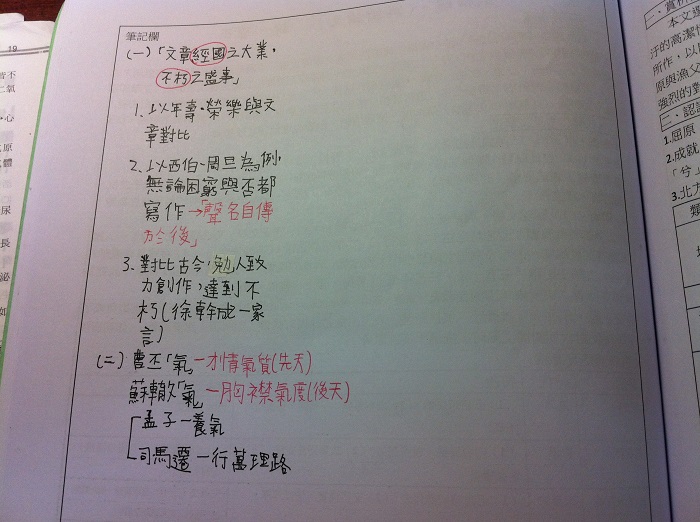 筆記欄
(一)「文章經國之大業,
不朽之盛事」
1. 以年壽、榮樂與文
章對比
2. 以西伯、周旦為例,
無論困窮與否都
寫作→「聲名自傳
於後」
3. 對比古今,勉人致
力創作,達到不
朽(徐幹成一家
言)
(二) 曹丕「氣」—才情氣質(先天)
蘇轍「氣」—胸襟氣度(後天)
孟子—養氣
司馬遷—行萬理路
19
皆不
二氧
、心
原
體
尿
長
泌
如
二、賞析
本文選
汙的高潔情
所作,以
原與漁父
強烈的對
二、認識
1.屈原
2.成就
「兮」
3.北方
類